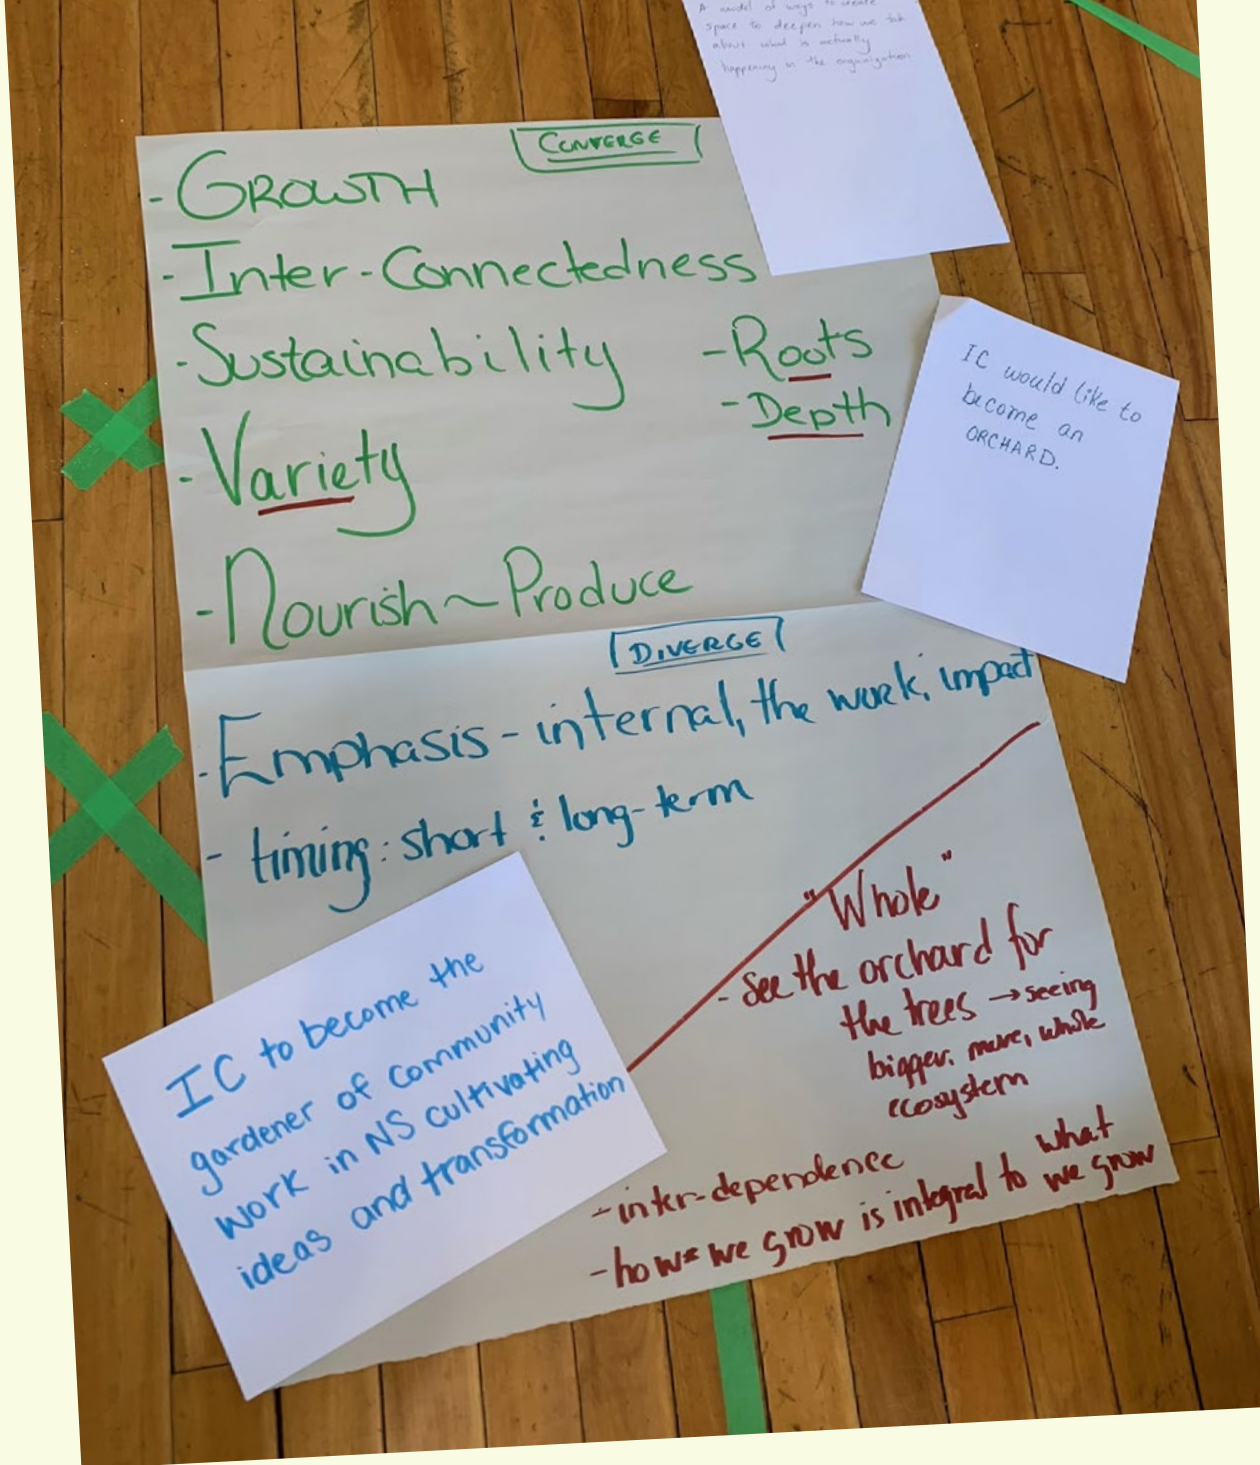 A model of ways to create
space to deepen how we talk
about what is actually
happening in the organization
CONVERGE
- GROWTH
- Inter-Connectedness
- Sustainability
- Roots
- Depth
- Variety
- Nourish ~ Produce
IC would like to
become an
ORCHARD.
DIVERGE
- Emphasis - internal, the work, impact
- timing: short & long-term
"Whole"
- See the orchard for
the trees → seeing
bigger, more, whole
ecosystem
- inter-dependence
- how* we grow is integral to what
we grow
IC to become the
gardener of community
work in NS cultivating
ideas and transformation